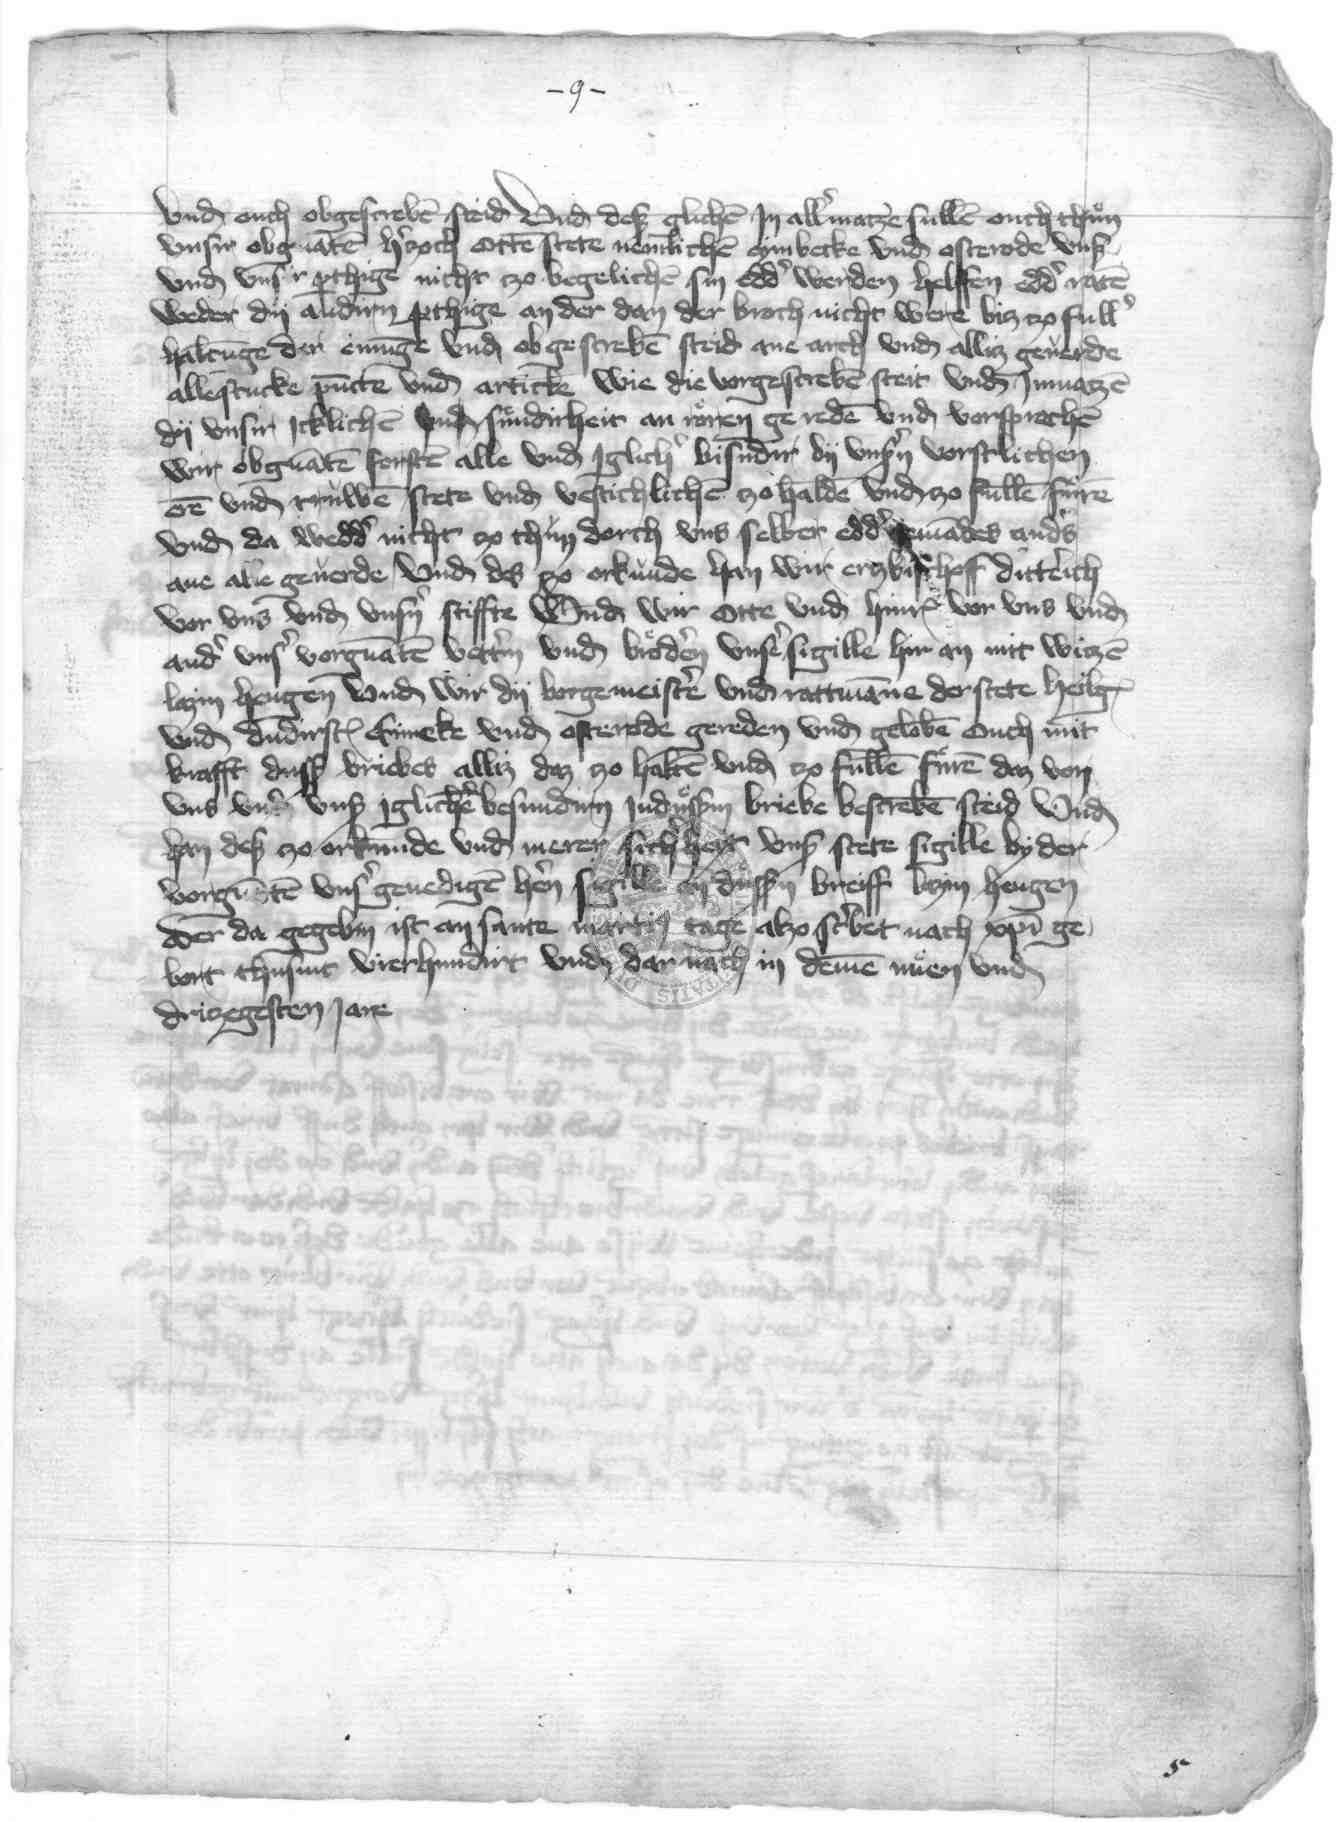 -9-
vnd ouch obgescrebē steid Vnd des glichē Jn all' matze sullē ouch thun
vnsir obgnātē h'zoch otten stete nemlichē eymbecke vnd osterode vnß
vnd vnsir pthige nicht zo begelichē sin edd' werden helffen edd' ratē
weder dij andirn pthige an der dan der broch nicht were biz zo full'
haltūge der einūge vnd obgescrebē steid ane arch vnd alliz geuerde
alle stucke pūcte vnd artickē wie die vorgescrebē steit vnd Jnmatzē
dij vnsir Jcklichē vnd sundirheit an roren ge redē vnd vorsprechē
wir obgnātē forstē alle vnd Jglich' bisundir dij vnßn vorstlichen
erē vnd truwē stete vnd vestichlichē zo haldē vnd zo fullē furē
vnd da wedd' nicht zo thun dorch vns selber edd' jemādes and's
ane alle geuerde Vnd des zo orkunde han wir erzbischoff ditterich
vor vns vnd vnsn stiffte Vnd wir Otte vnd hinr vor vns vnd
and' vns' vorgnātē vettrn vnd brodern vnse sigille hir an mit witzē
lazin hengen Vnd wir dij borgemeistē vnd rattmāne der stete heilg
vnd dudirst Eimeke vnd osterode gereden vnd gelobē Ouch mit
krafft dußs briebes alliz daz zo haltē vnd zo fullē furē daz von
vns vn' vnß Jglichē besundirn Jndussin briebe bescrebē steid Vnd
han deß zo orkunde vnd merer sich'heit vnß stete sigille by der
vorgnātē vns' genedigē hern sigille an dussin breiff lazin hengen
Der da gegebin ist an sante martis tage alzo scrbet nach xpi ge
bort thusint vierhundirt vnd dar nach in deme nuen vnd
drizegesten Jare
5